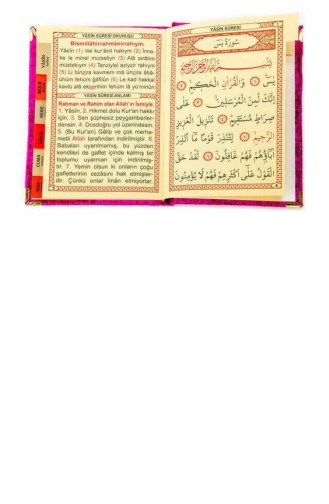 YÂSÎN SÛRESİ OKUNUŞU
Bismillâhirrahmânirrahîym.
Yâsîn (1) Vel kur'ânil hakiym (2) İnne-
ke le minel mürseliyn (3) Alâ sırâtım
müstekıym (4) Tenziylel aziyzir rahıym
(5) Li tünzira kavmem mâ ünzira âbâ-
ühüm fehüm ğâfilûn (6) Le kad hakkal
kavlü alâ ekserihim fehüm lâ yü'minûn
YÂSÎN SÛRESİ ANLAMI
Rahman ve Rahim olan Allah'ın İsmiyle.
1. Yâsîn, 2. Hikmet dolu Kur'an hakkı
için, 3. Sen şüphesiz peygamberler-
densin. 4. Dosdoğru yol üzerindesin.
5. (Bu Kur'an) Gâlip ve çok merha-
metli Allah tarafından indirilmiştir. 6.
Babaları uyarılmamış, bu yüzden
kendileri de gaflet içinde kalmış bir
toplumu uyarman için indirilmiş-
tir. 7. Yemin olsun ki onların çoğu
gafletlerinin cezâsını hak etmişler-
dir. Çünkü onlar îmân etmiyorlar.
YÂSÎN SÛRESİ
سُورَةُ يٰسٓ
يٰسٓ ۝ وَالْقُرْاٰنِ الْحَكٖيمِ ۝
اِنَّكَ لَمِنَ الْمُرْسَلٖينَ ۝ عَلٰى
صِرَاطٍ مُسْتَقٖيمٍ ۝ تَنْزٖيلَ الْعَزٖيزِ
الرَّحٖيمِ ۝ لِتُنْذِرَ قَوْمًا مَٓا اُنْذِرَ
اٰبَٓاؤُ۬هُمْ فَهُمْ غَافِلُونَ ۝ لَقَدْ حَقَّ
الْقَوْلُ عَلٰٓى اَكْثَرِهِمْ فَهُمْ لَا يُؤْمِنُونَ
YÂSÎN
MÜLK
NEBE
CUMA